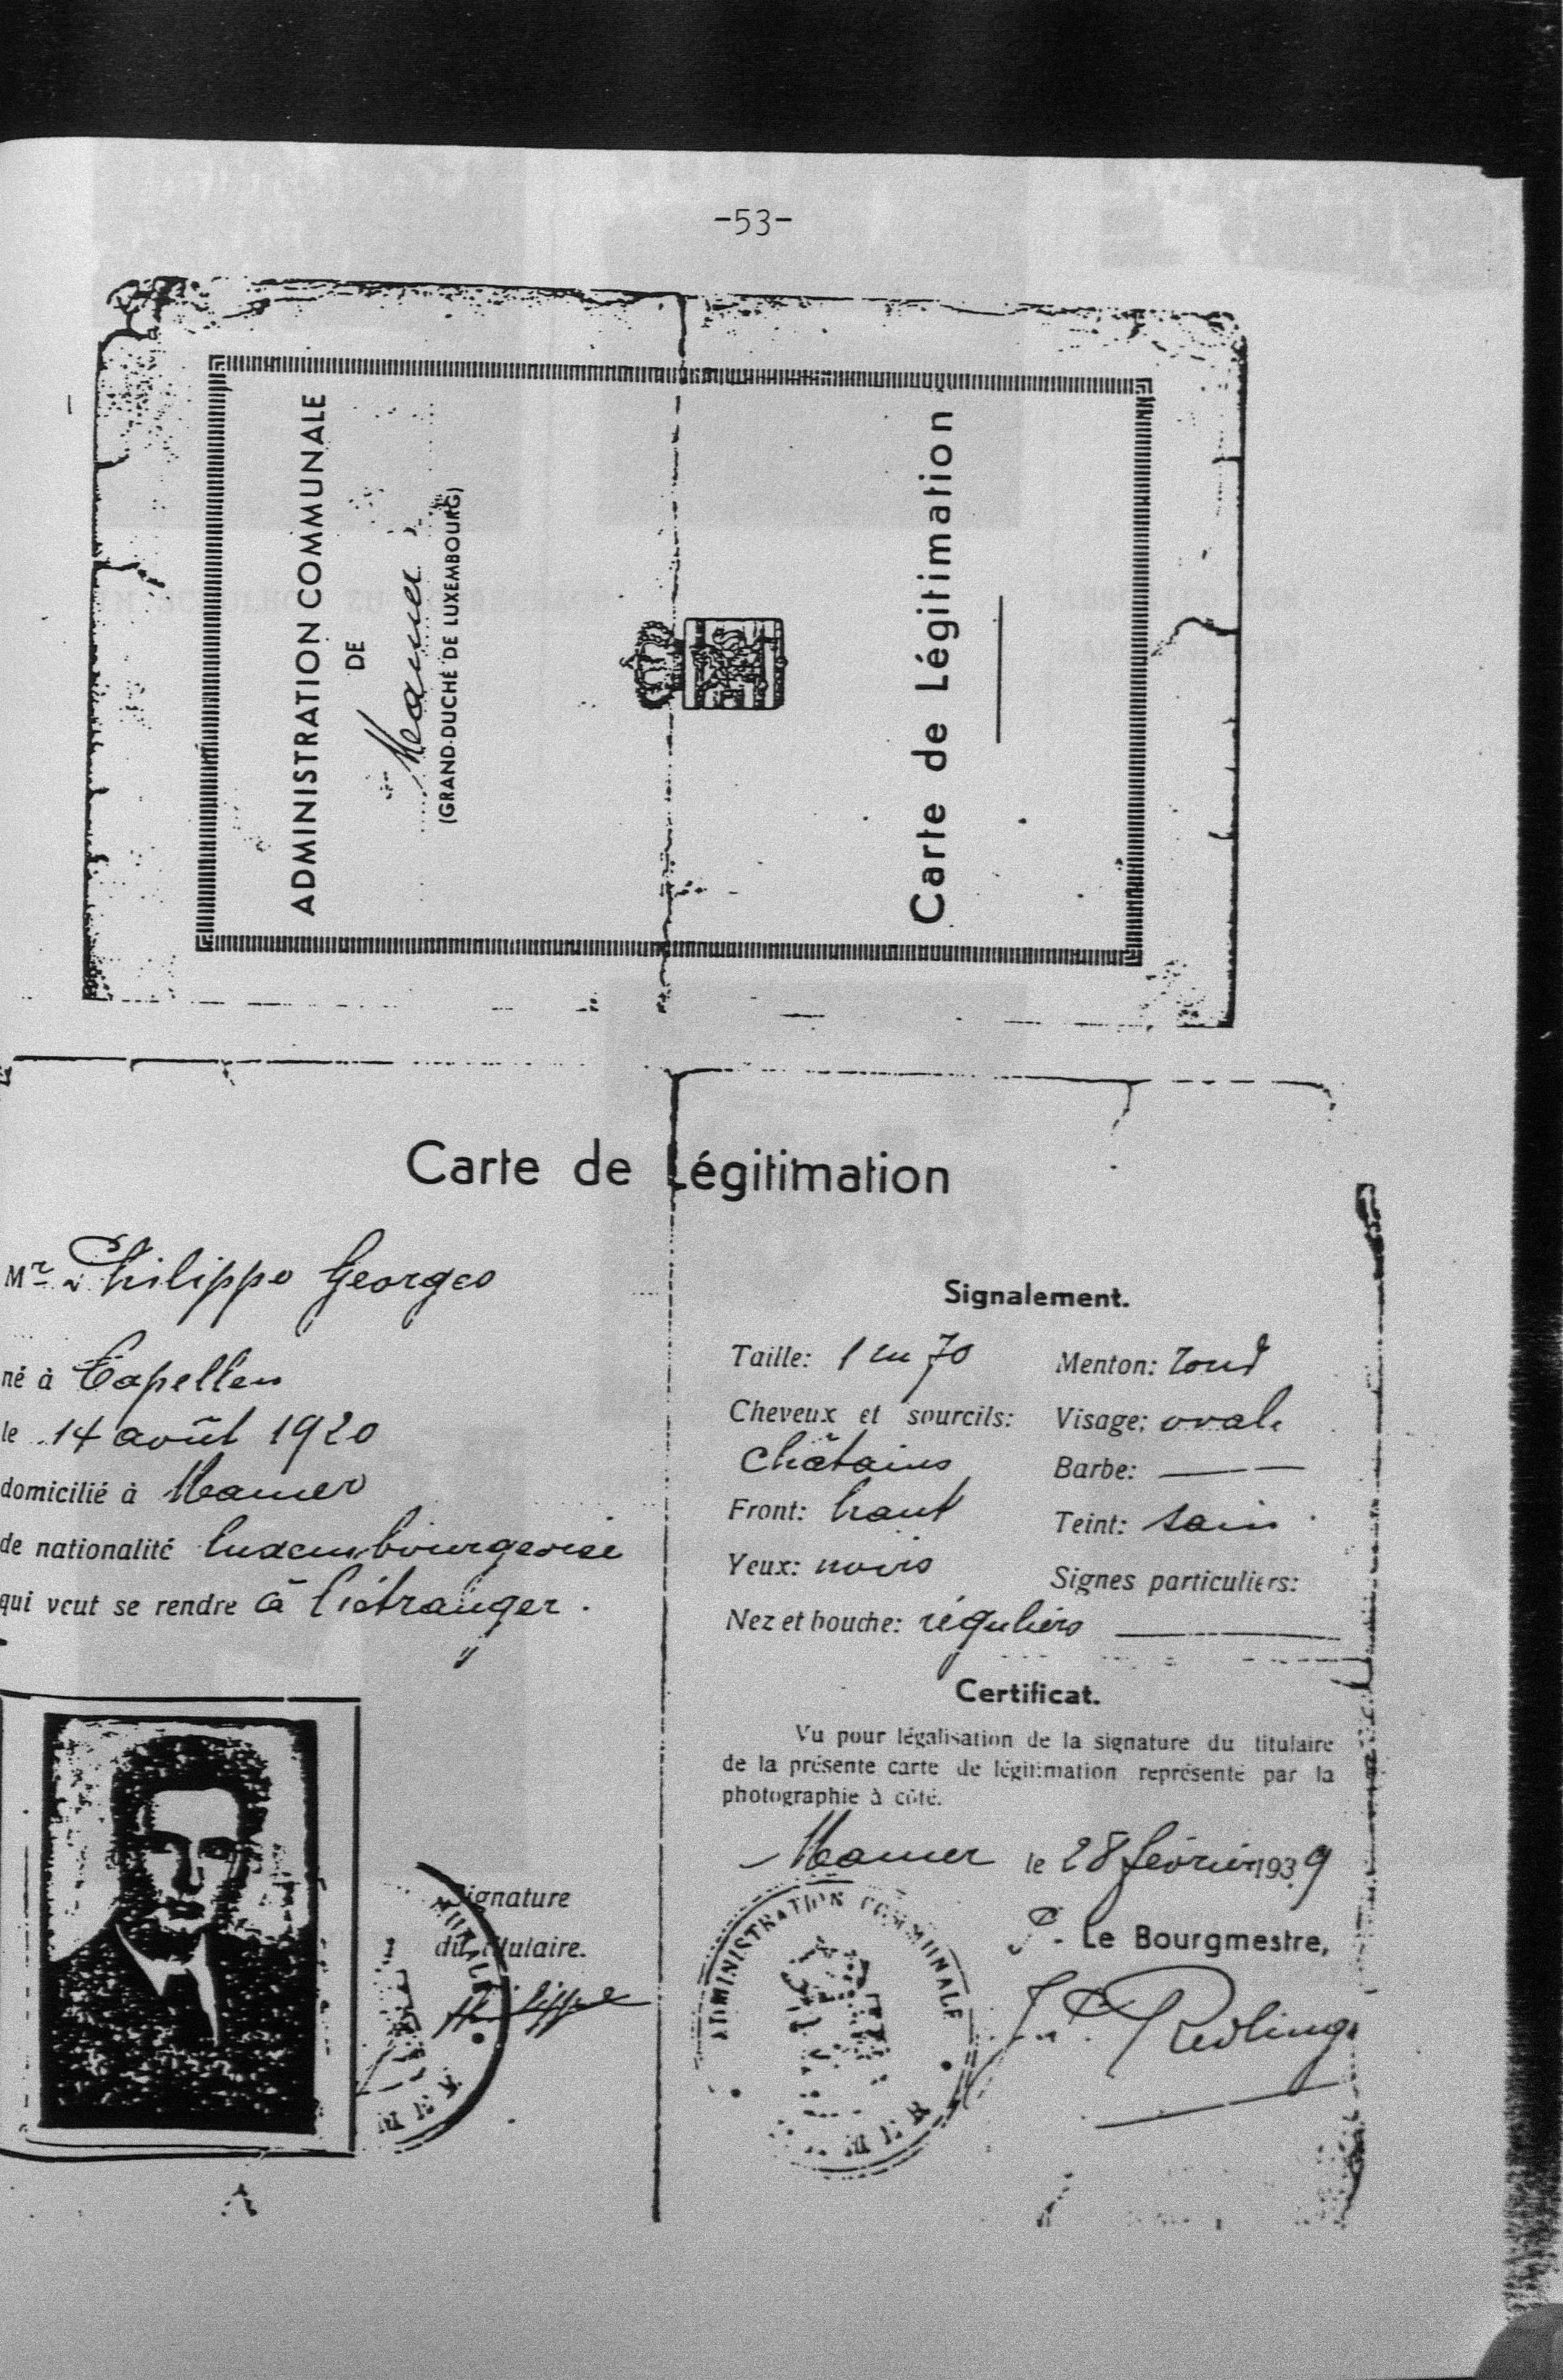 -53-
ADMINISTRATION COMMUNALE
DE
Mamer
(GRAND-DUCHÉ DE LUXEMBOURG)
Carte de Légitimation
Carte de Légitimation
Mr Philippe Georges
né à Capellen
le 14 août 1920
domicilié à Mamer
de nationalité luxembourgeoise
qui veut se rendre à l'étranger.
Signature
du titulaire.
Philippe
Signalement.
Taille: 1 m 70
Menton: rond
Cheveux et sourcils:
Visage: ovale
châtains
Barbe: —
Front: haut
Teint: sain
Yeux: noirs
Signes particuliers:
Nez et bouche: réguliers —
Certificat.
Vu pour légalisation de la signature du titulaire
de la présente carte de légitimation représenté par la
photographie à côté.
Mamer le 28 février 1939
P. Le Bourgmestre,
ADMINISTRATION COMMUNALE